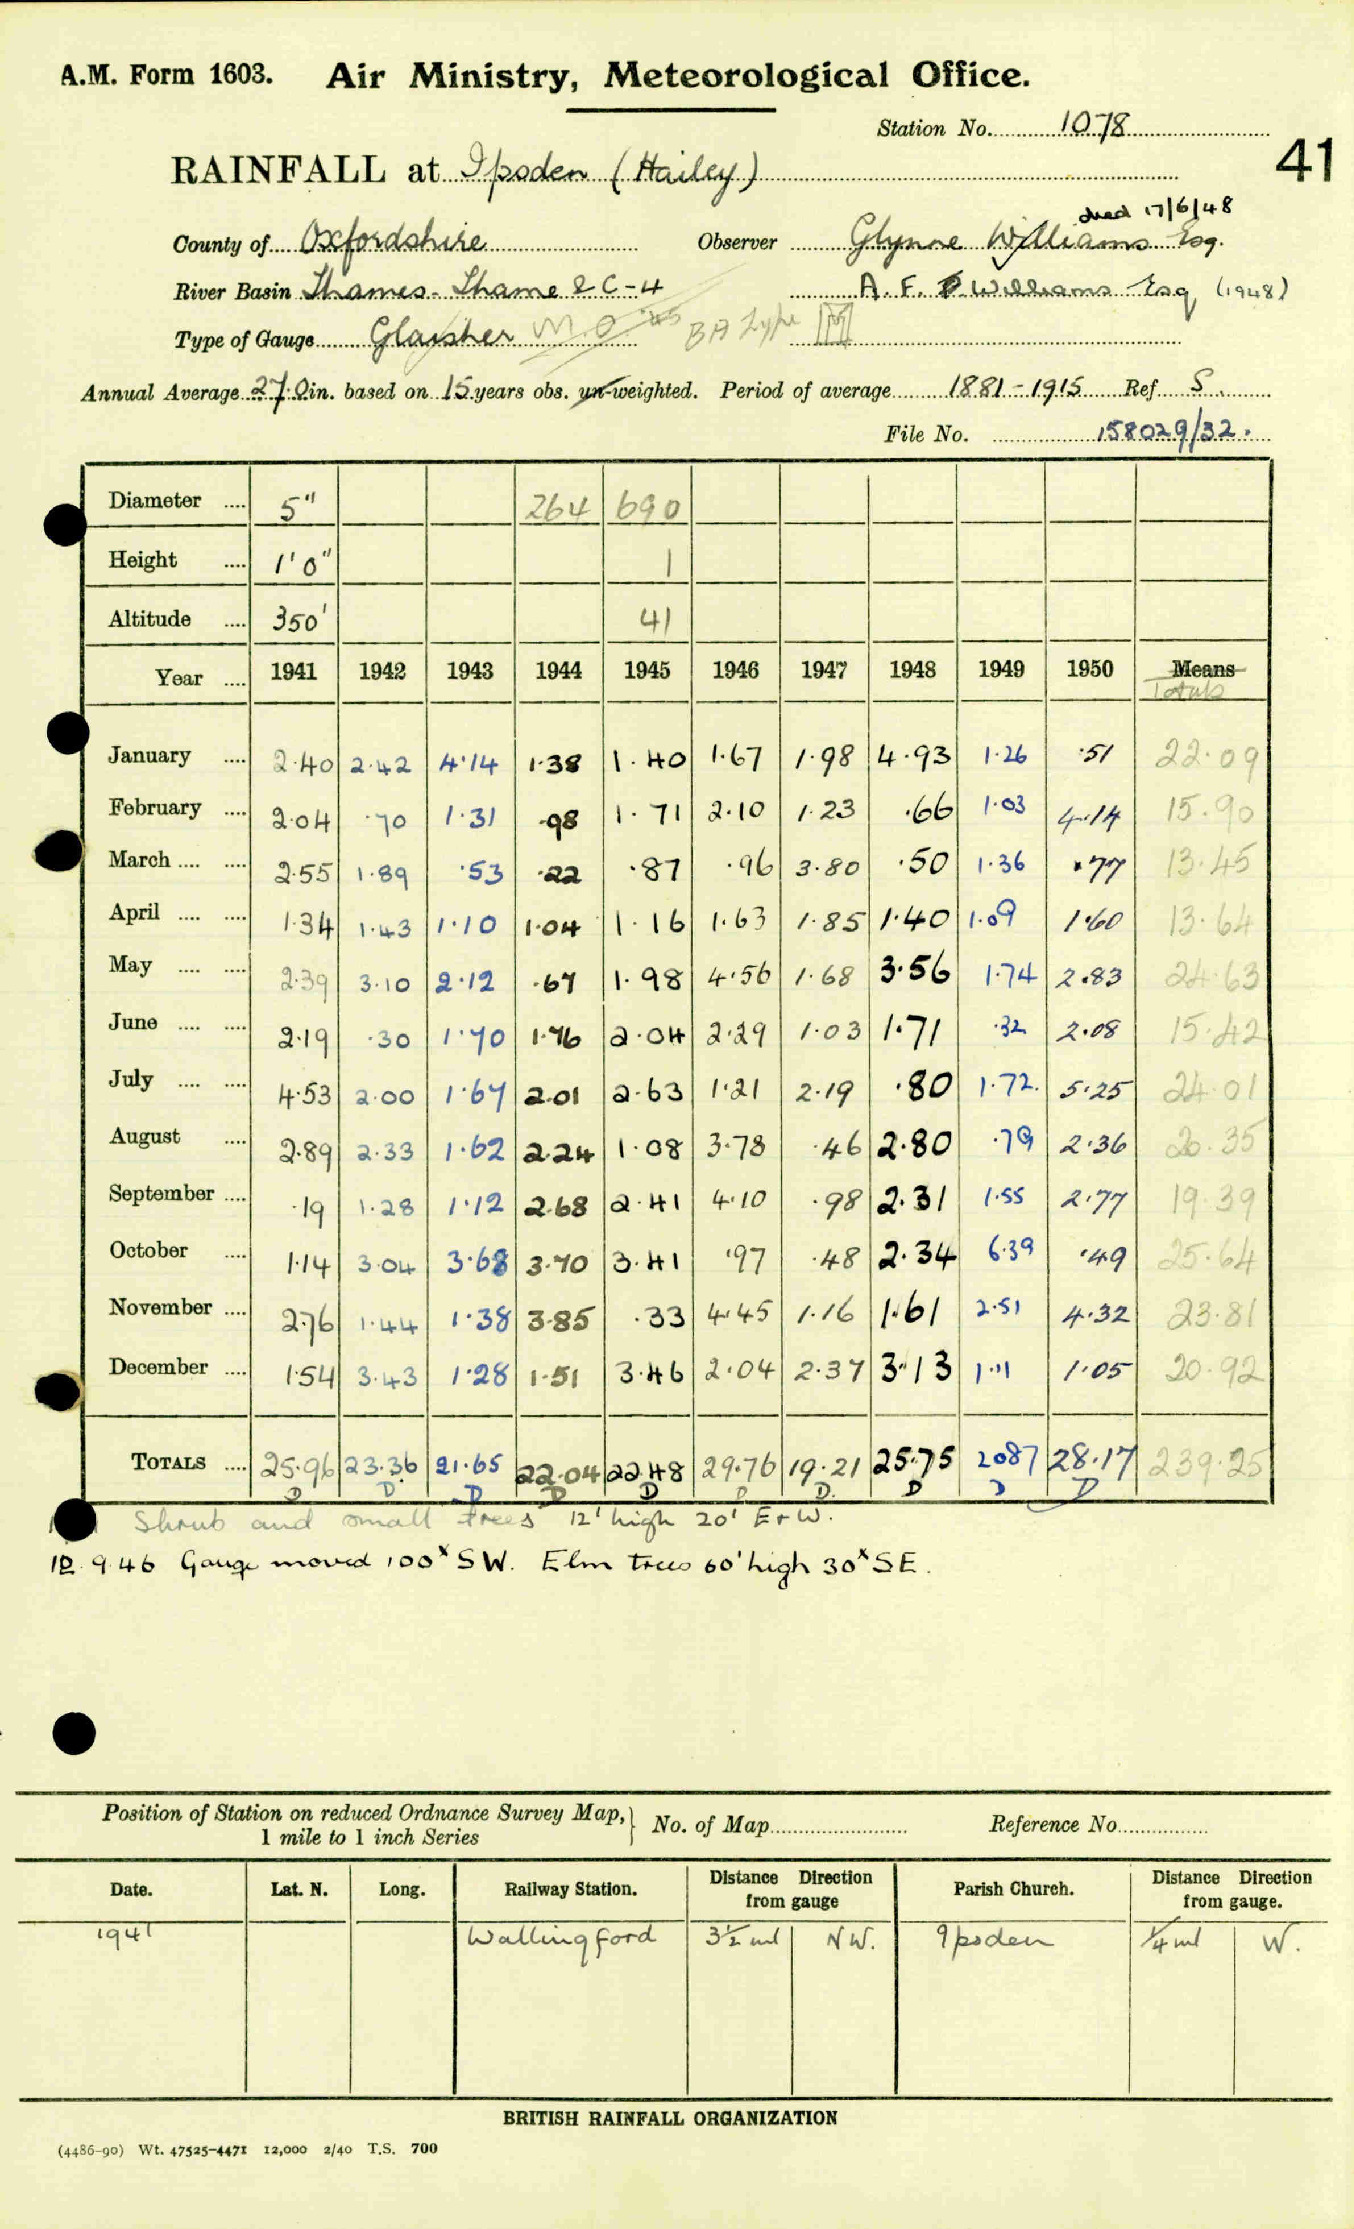 A.M. Form 1603. Air Ministry, Meteorological Office.
Station No. 1078
41
RAINFALL at Ipsden (Hailey)
died 17/6/48
County of Oxfordshire Observer Glynne Williams Esq.
River Basin Thames - Thame & C-4 A. F. Williams Esq (1948)
Type of Gauge Glaisher M.O. '45 BA Type M
Annual Average 27.0 in. based on 15 years obs. un-weighted. Period of average 1881-1915 Ref S.
File No. 158029/32.
Diameter .... 5" 264 690
Height .... 1'0" 1
Altitude .... 350' 41
Year .... 1941 1942 1943 1944 1945 1946 1947 1948 1949 1950 Means
Totals
January .... 2.40 2.42 4.14 1.38 1.40 1.67 1.98 4.93 1.26 .51 22.09
February .... 2.04 .70 1.31 .98 1.71 2.10 1.23 .66 1.03 4.14 15.90
March .... .... 2.55 1.89 .53 .22 .87 .96 3.80 .50 1.36 .77 13.45
April .... .... 1.34 1.43 1.10 1.04 1.16 1.63 1.85 1.40 1.09 1.60 13.64
May .... .... 2.39 3.10 2.12 .67 1.98 4.56 1.68 3.56 1.74 2.83 24.63
June .... .... 2.19 .30 1.70 1.76 2.04 2.29 1.03 1.71 .32 2.08 15.42
July .... .... 4.53 2.00 1.67 2.01 2.63 1.21 2.19 .80 1.72. 5.25 24.01
August .... 2.89 2.33 1.62 2.24 1.08 3.78 .46 2.80 .79 2.36 20.35
September .... .19 1.28 1.12 2.68 2.41 4.10 .98 2.31 1.55 2.77 19.39
October .... 1.14 3.04 3.68 3.70 3.41 .97 .48 2.34 6.39 .49 25.64
November .... 2.76 1.44 1.38 3.85 .33 4.45 1.16 1.61 2.51 4.32 23.81
December .... 1.54 3.43 1.28 1.51 3.46 2.04 2.37 3.13 1.11 1.05 20.92
TOTALS .... 25.96 23.36 21.65 22.04 22.48 29.76 19.21 25.75 20.87 28.17 239.25
D D D D D D D. D D D
Shrub and small trees 12' high 20' E + W.
12.9.46 Gauge moved 100ˣ SW. Elm trees 60' high 30ˣ SE.
Position of Station on reduced Ordnance Survey Map, 1 mile to 1 inch Series } No. of Map Reference No.
Date. Lat. N. Long. Railway Station. Distance Direction from gauge Parish Church. Distance Direction from gauge.
1941 Wallingford 3½ ml NW. Ipsden ¼ ml W.
BRITISH RAINFALL ORGANIZATION
(4486-90) Wt. 47525-4471 12,000 2/40 T.S. 700